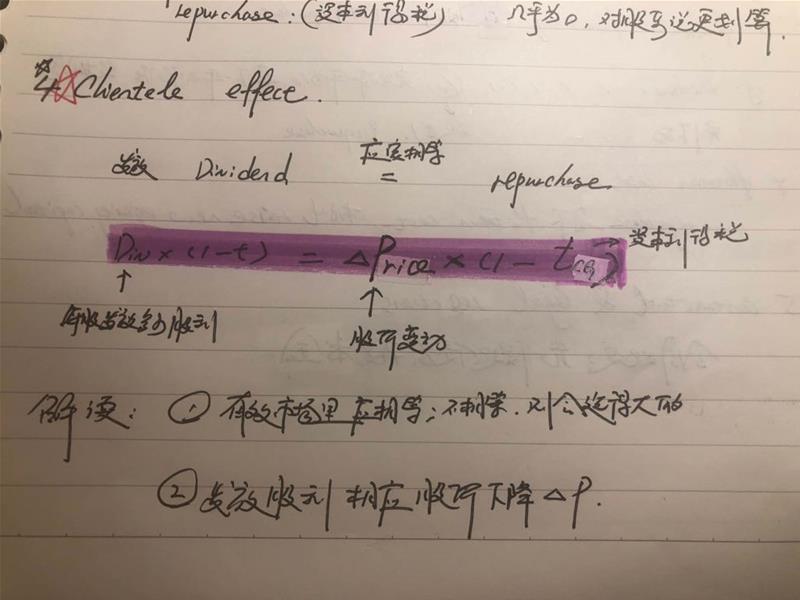 repurchase: (资本利得税) 几乎为0, 对股东说更划算.
4 Clientele effect.
发放 Dividend 应实相等 = repurchase
Div × (1-t) = △Price × (1- tcg) → 资本利得税
↑ ↑
每股发放多少股利 股价变动
解读: ① 有效市场里应相等; 不相等, 则会选得大的
② 发放股利 相应股价下降 △P.